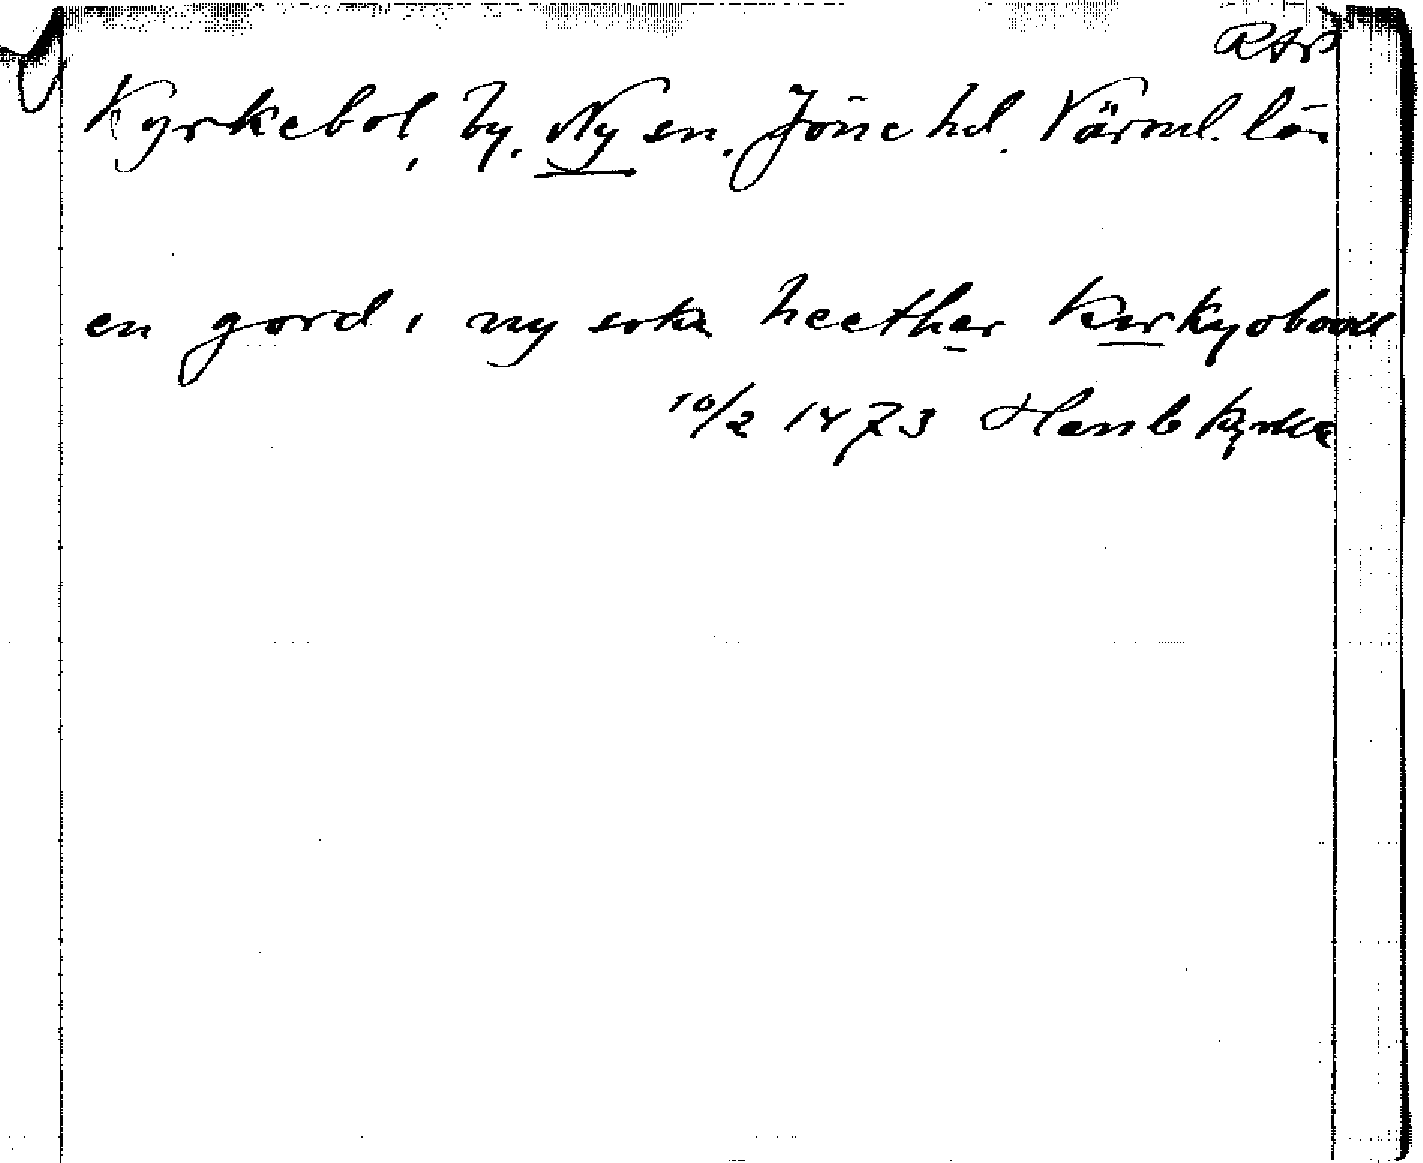 RAP
Kyrkebol, by. Ny sn. Jösse hd. Värml. län
en gord i ny sokn heether Kerkyoboull
10/2 1473